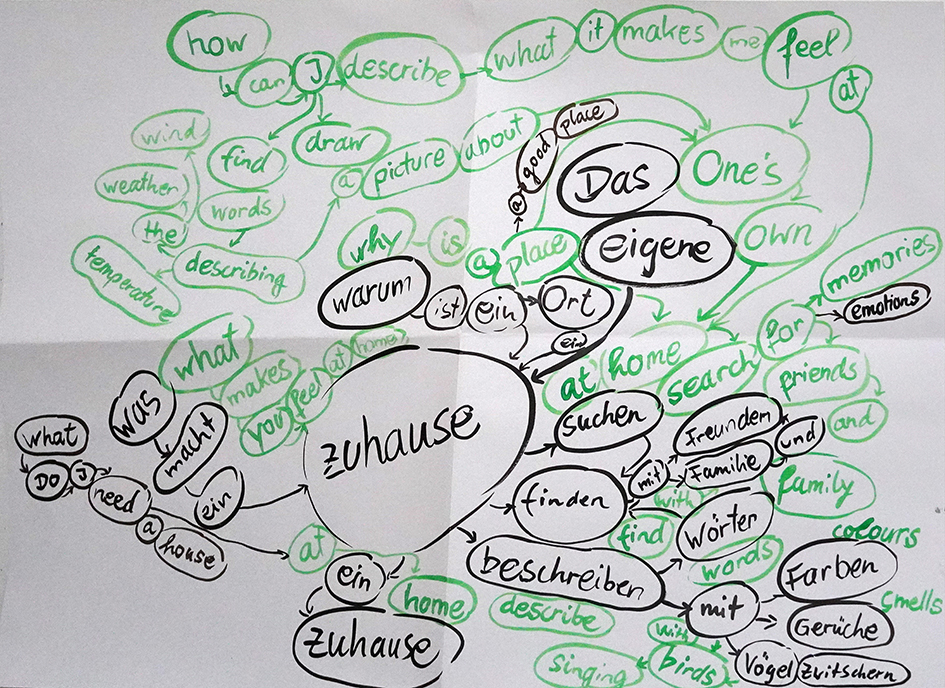 how can I describe what it makes me feel at
find draw
words describing
wind
weather
the
temperature
a picture about
One's own
a good place
why is a place
Das eigene
warum ist ein Ort
ein
at home
search for memories
emotions
friends and
family
what makes you feel at home
was macht ein
zuhause
what DO I need a house
suchen
finden mit Freunden
Familie und
with
find
Wörter
words
at home
ein
zuhause
beschreiben mit Farben
colours
Gerüche
smells
Vögel Zwitschern
describe with birds singing